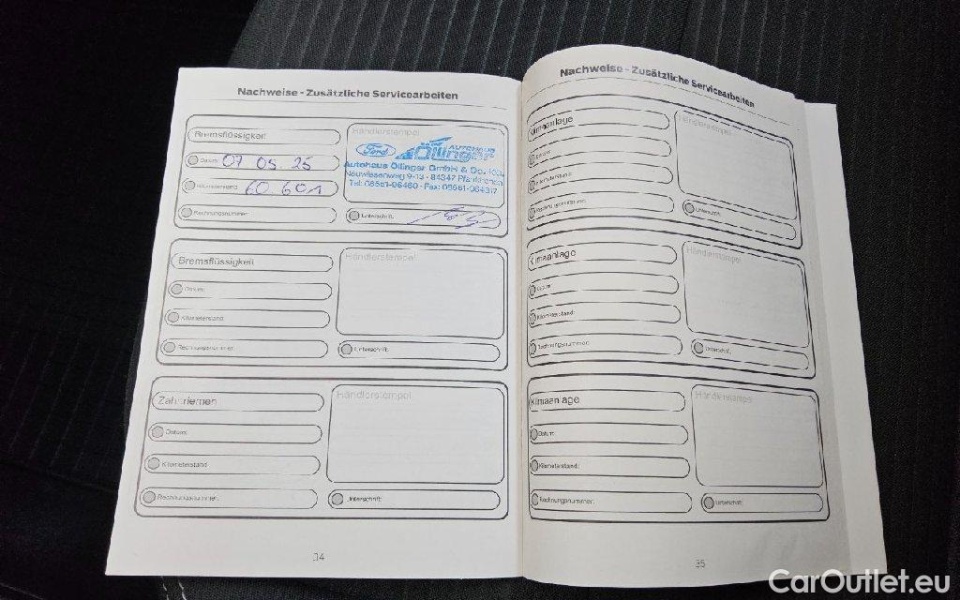 Nachweise - Zusätzliche Servicearbeiten
Bremsflüssigkeit
Datum: 07 05 25
Kilometerstand: 60 601
Rechnungsnummer:
Händlerstempel
Ford
AUTOHAUS
Öllinger
Autohaus Öllinger GmbH & Co. KG
84347 Pfarrkirchen
Unterschrift:
Bremsflüssigkeit
Datum:
Kilometerstand:
Rechnungsnummer:
Händlerstempel
Unterschrift:
Zahnriemen
Datum:
Kilometerstand:
Rechnungsnummer:
Händlerstempel
Unterschrift:
34
Nachweise - Zusätzliche Servicearbeiten
Klimaanlage
Datum:
Kilometerstand:
Rechnungsnummer:
Händlerstempel
Unterschrift:
Klimaanlage
Datum:
Kilometerstand:
Rechnungsnummer:
Händlerstempel
Unterschrift:
Klimaanlage
Datum:
Kilometerstand:
Rechnungsnummer:
Händlerstempel
Unterschrift:
35
CarOutlet.eu